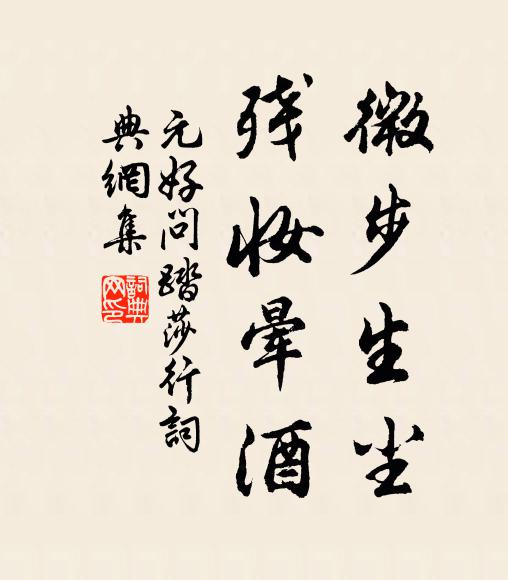 微步生尘
残妆晕酒
元好问踏莎行词
典網集
詞典網印